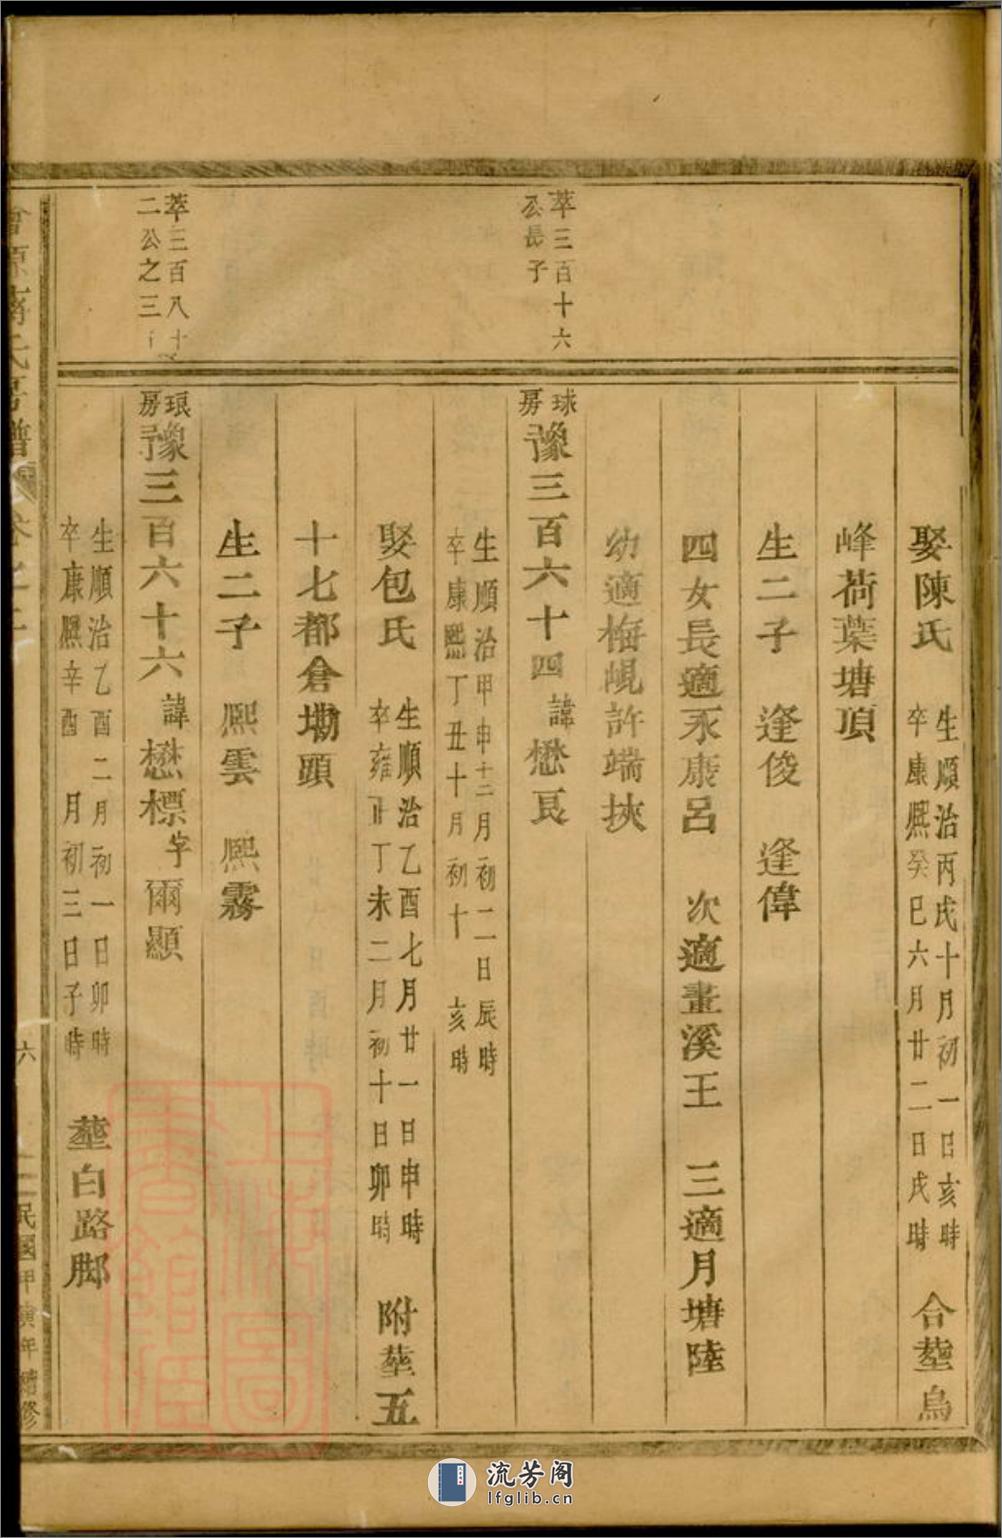 娶陳氏
生順治丙戌十月初一日亥時
卒康熙癸巳六月廿二日戌時
合塟烏
峰荷葉塘頂
生二子 逢俊 逢偉
四女長適永康呂 次適畫溪王 三適月塘陸
幼適梅峴許端挾
萃三百十六
公長子
球房
豫三百六十四諱懋良
生順治甲申十二月初二日辰時
卒康熙丁丑十月初十 亥時
娶包氏
生順治乙酉七月廿一日申時
卒雍正丁未二月初十日卯時
附塟五
十七都倉塘頭
生二子 熙雲 熙霧
萃三百八十
二公之三
琅房
豫三百六十六諱懋標字爾顯
生順治乙酉二月初一日卯時
卒康熙辛酉 月初三日子時
塟白路脚
氏房譜
六
民國甲寅年續修
上海圖書館藏
流芳阁
lfglib.cn